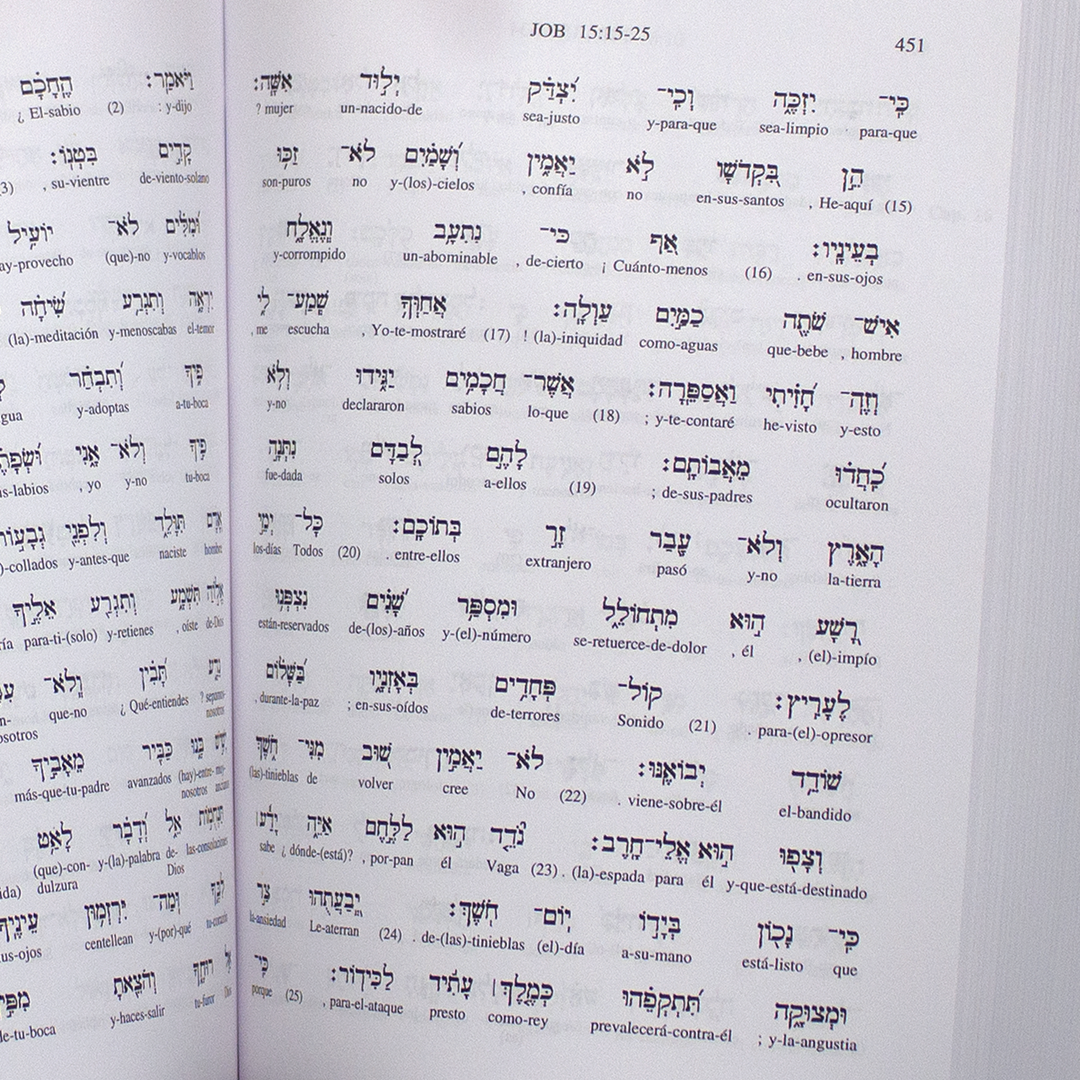 וַיֹּאמַר׃ הֶחָכָם
¿ El-sabio (2) : y-dijo
קָדִים בִּטְנוֹ׃
, su-vientre de-viento-solano
וּמִלִּים לֹא־ יוֹעִיל
(que)-no y-vocablos
יִרְאָה וְתִגְרַע שִׂיחָה
(la)-meditación y-menoscabas el-temor
פִּיךָ וְתִבְחַר
y-adoptas a-tu-boca
פִיךָ וְלֹא־ אָנִי
, yo y-no tu-boca
אָדָם תִּוָּלֵד וְלִפְנֵי גְבָעוֹת
collados y-antes-que naciste hombre
אֱלוֹהַ תִּשְׁמָע וְתִגְרַע אֵלֶיךָ
para-ti-(solo) y-retienes , oíste de-Dios
נֵדָע תָּבִין וְלֹא־
que-no ¿ Qué-entiendes
כַּבִּיר מֵאָבִיךָ
más-que-tu-padre avanzados
אֵל וְדָבָר לָאַט
(que)-con-dulzura y-(la)-palabra de-Dios las-consolaciones
וּמַה־ יִּרְזְמוּן עֵינֶיךָ
centellean y-(por)-qué tu-corazón
רוּחֶךָ וְהֹצֵאתָ
y-haces-salir tu-furor
JOB 15:15-25 451
כִּי־ יִזְכֶּה וְכִי־ יִצְדַּק יְלוּד אִשָּׁה׃
? mujer un-nacido-de sea-justo y-para-que sea-limpio para-que
הֵן בִּקְדֹשָׁו לֹא יַאֲמִין וְשָׁמַיִם לֹא־ זַכּוּ
son-puros no y-(los)-cielos , confía no en-sus-santos , He-aquí (15)
בְעֵינָיו׃ אַף כִּי־ נִתְעָב וְנֶאֱלָח
y-corrompido un-abominable , de-cierto ¡ Cuánto-menos (16) . en-sus-ojos
אִישׁ־ שֹׁתֶה כַמַּיִם עַוְלָה׃ אֲחַוְךָ שְׁמַע־ לִי
, me escucha , Yo-te-mostraré (17) ! (la)-iniquidad como-aguas que-bebe , hombre
וְזֶה־ חָזִיתִי וַאֲסַפֵּרָה׃ אֲשֶׁר־ חֲכָמִים יַגִּידוּ וְלֹא
y-no declararon sabios lo-que (18) ; y-te-contaré he-visto y-esto
כִחֲדוּ מֵאֲבוֹתָם׃ לָהֶם לְבַדָּם נִתְּנָה
fue-dada solos a-ellos (19) ; de-sus-padres ocultaron
הָאָרֶץ וְלֹא־ עָבַר זָר בְּתוֹכָם׃ כָּל־ יְמֵי
los-días Todos (20) . entre-ellos extranjero pasó y-no la-tierra
רָשָׁע הוּא מִתְחוֹלֵל וּמִסְפַּר שָׁנִים נִצְפְּנוּ
están-reservados de-(los)-años y-(el)-número se-retuerce-de-dolor , él , (el)-impío
לֶעָרִיץ׃ קוֹל־ פְּחָדִים בְּאָזְנָיו בַּשָּׁלוֹם
, durante-la-paz ; en-sus-oídos de-terrores Sonido (21) . para-(el)-opresor
שׁוֹדֵד יְבוֹאֶנּוּ׃ לֹא־ יַאֲמִין שׁוּב מִנִּי־ חֹשֶׁךְ
(las)-tinieblas de volver cree No (22) . viene-sobre-él el-bandido
וְצָפוּ הוּא אֱלֵי־חָרֶב׃ נֹדֵד הוּא לַלֶּחֶם אַיֵּה יָדַע
sabe ¿ dónde-(está)? , por-pan él Vaga (23) . (la)-espada para él y-que-está-destinado
כִּי־ נָכוֹן בְּיָדוֹ יוֹם־ חֹשֶׁךְ׃ יְבַעֲתֻהוּ צַר
la-ansiedad Le-aterran (24) . de-(las)-tinieblas (el)-día a-su-mano está-listo que
וּמְצוּקָה תִּתְקְפֵהוּ כְּמֶלֶךְ׀ עָתִיד לַכִּידוֹר׃ כִּי־
porque (25) , para-el-ataque presto como-rey prevalecerá-contra-él ; y-la-angustia